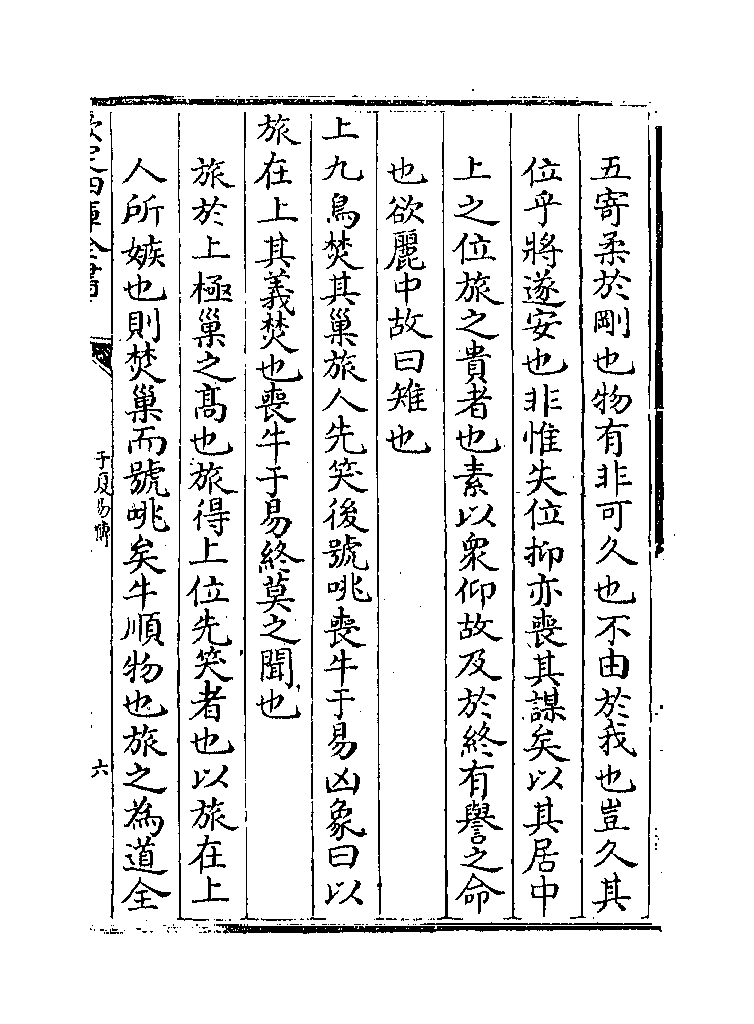 五寄柔於剛也物有非可久也不由於我也豈久其
位乎將遂安也非惟失位抑亦喪其謀矣以其居中
上之位旅之貴者也素以衆仰故及於終有譽之命
也欲麗中故曰雉也
上九鳥焚其巢旅人先笑後號咷喪牛于易凶象曰以
旅在上其義焚也喪牛于易終莫之聞也
旅於上極巢之髙也旅得上位先笑者也以旅在上
人所嫉也則焚巢而號咷矣牛順物也旅之為道全
欽定四庫全書
子夏易傳
六